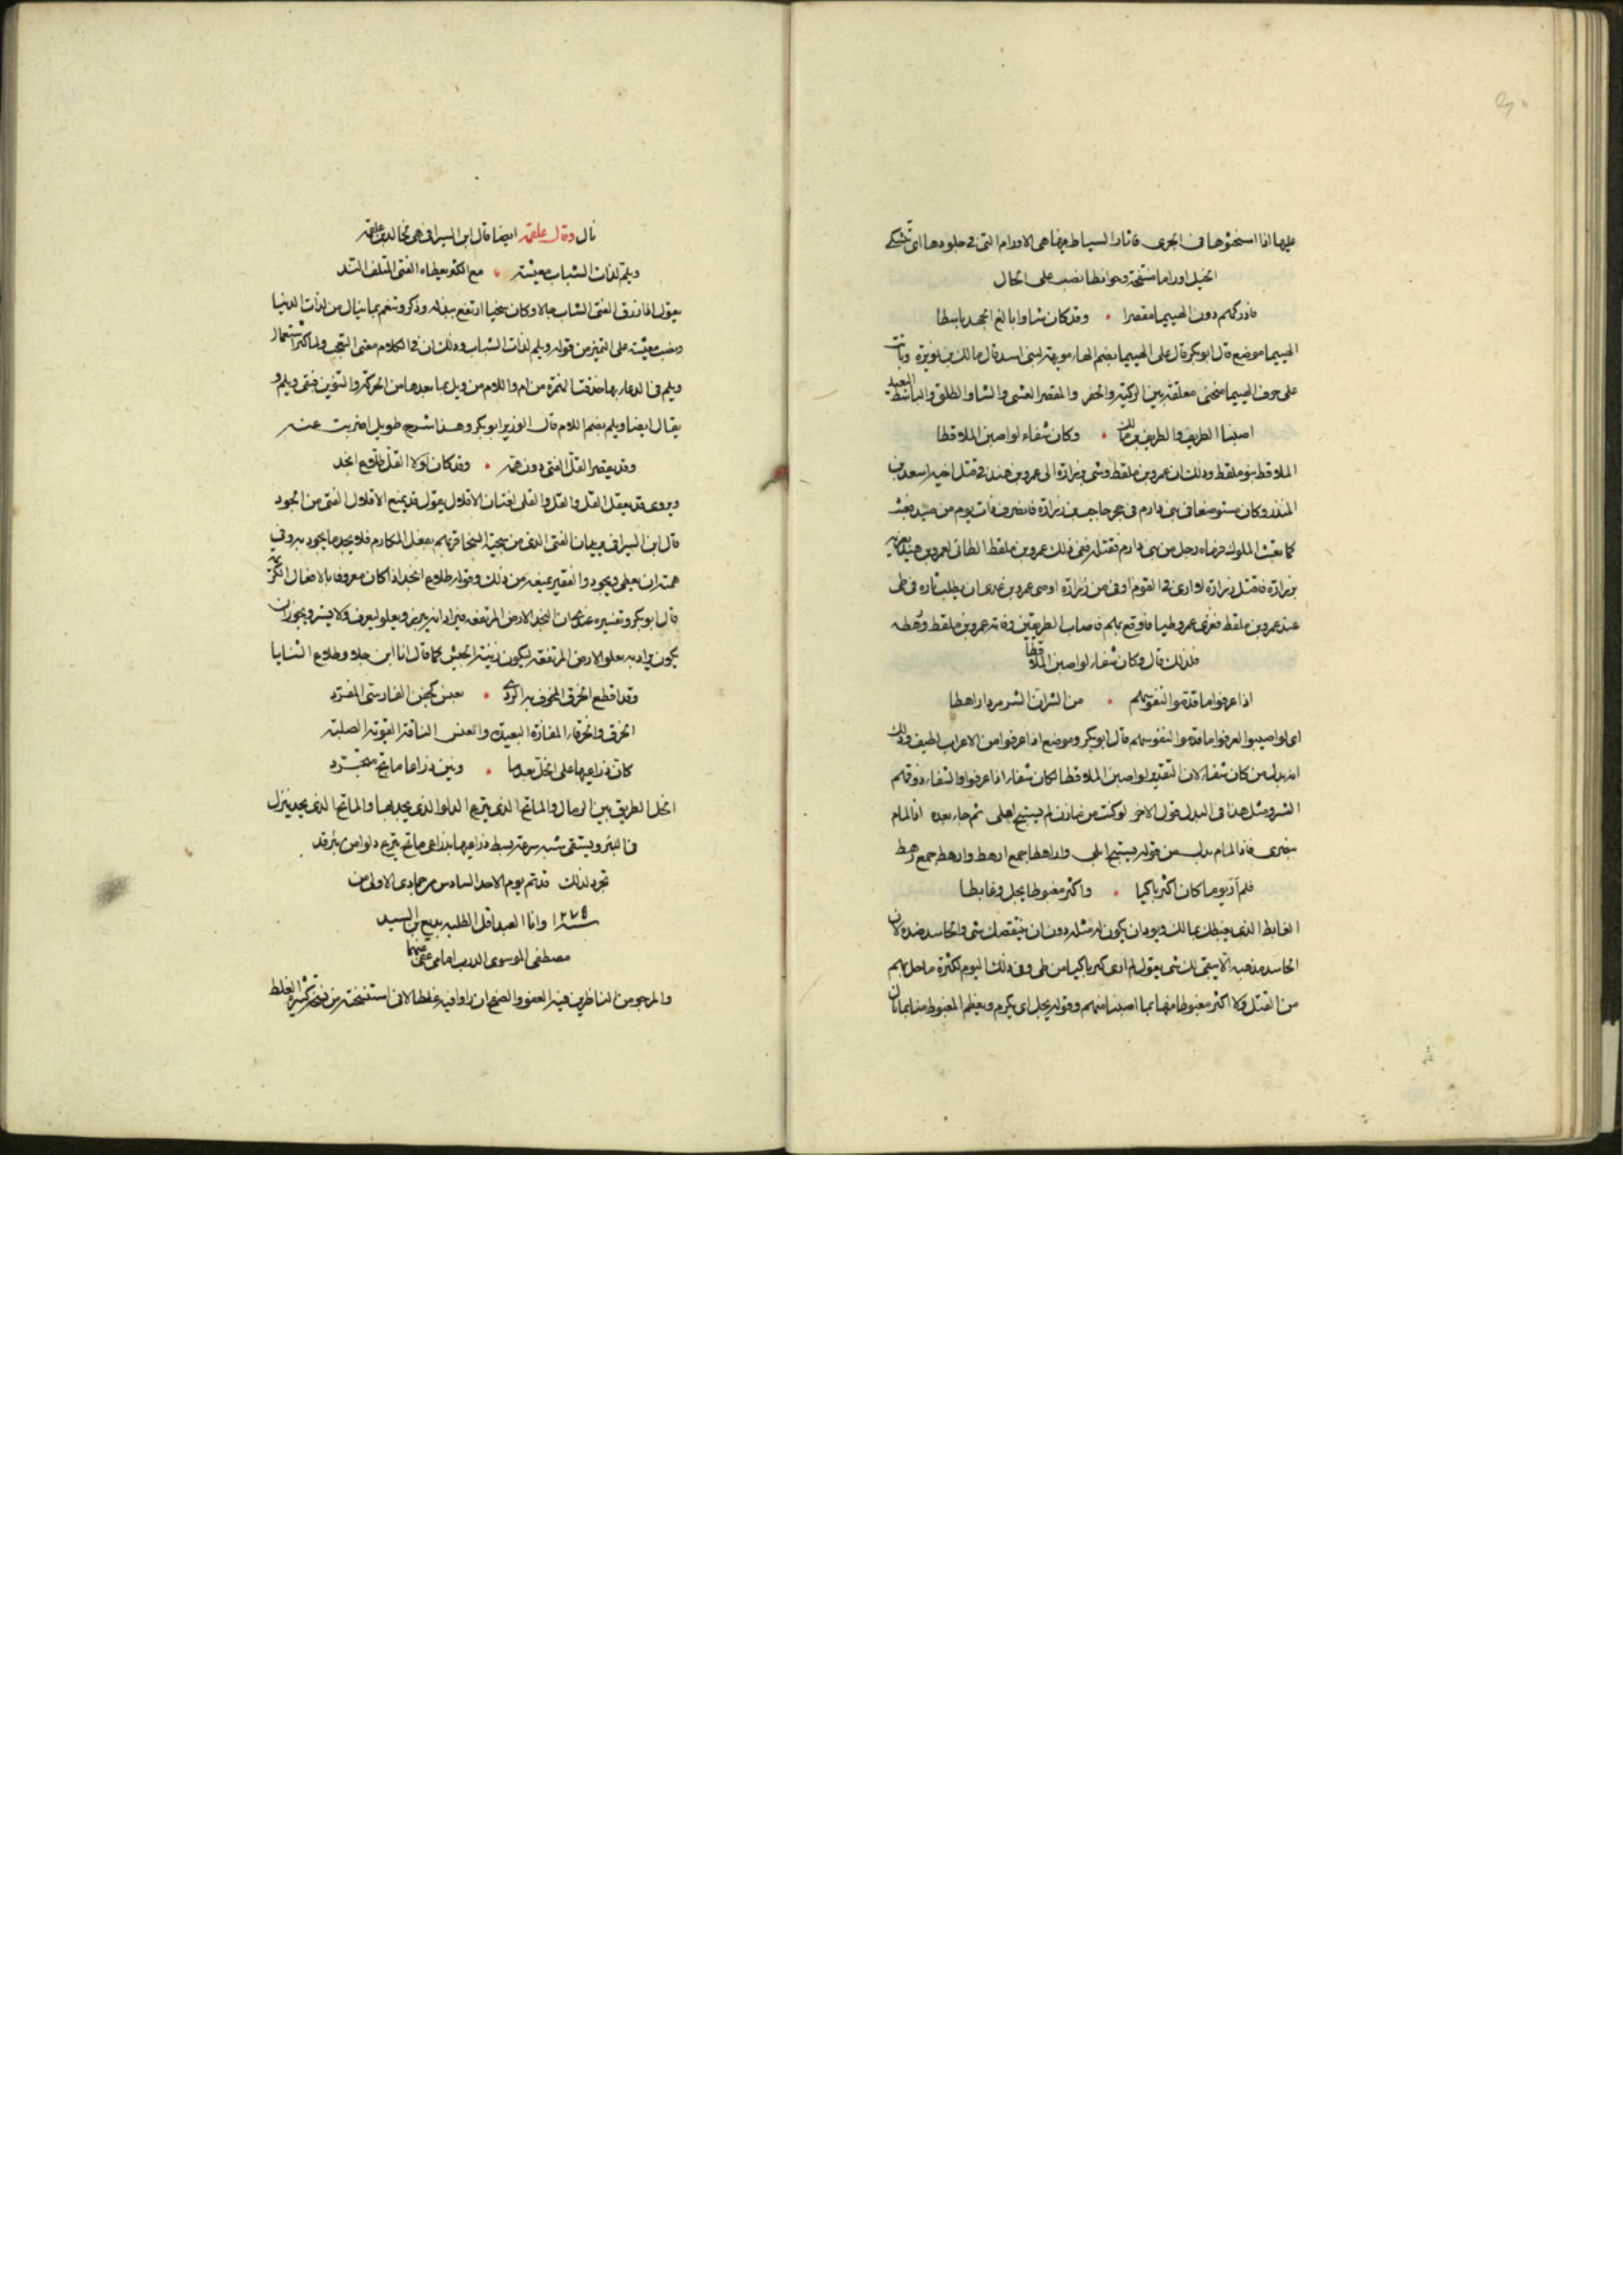 عليها اذا استحثوها فى الجرى فاثار السياط فيها هى الاورام التى فى جلودها اى تشكى
الخيل اوراما منتفخة وحوابطا نصب على الحال
فادركهم دون الهييما مقصرا • وقد كان شاوا بالغ الجهد باسطا
الهييما موضع قال ابو بكر قال على الهييما بضم الهاء مويهة لبنى اسد قال مالك بن نويرة وباتت
على جوف الهييما منحتى معلقة بين الركية والجفر والمقصر العشى والشاو الطلق والباسط البعيد
اصبنا الطريف والطريف بن مالك • وكان شفاء لو اصبن الملاقطا
الملاقط بنو ملقط وذلك ان عمرو بن ملقط وشى بزرارة الى عمرو بن هند فى قتل اخيه اسعد بن
المنذر وكان مستوضعا فى بنى دارم فى حجر حاجب بن زرارة فانصرف ذات يوم من صيد فعبث
كما تعبث الملوك فرماه رجل من بنى دارم فقتله ففى ذلك عمرو بن ملقط الطائى لعمرو بن هند
بن زرارة فاقتل زرارة لا ارى فى القوم اوفى من زرارة اوصى عمرو بن عدى ان يطلب ثاره فى طى
عند عمرو بن ملقط فغزى عمرو طيا فاوقع بهم فاصاب الطريفين وفاته عمرو بن ملقط ورهطه
فلذلك قال وكان شفاء لو اصبن الملاقطا
اذا عرفوا ما قدموا لنفوسهم • من الشر ان الشر مرد اراهطا
اى لو اصيبوا لعرفوا ما قدموا لنفوسهم قال ابو بكر وموضع اذا عرفوا من الاعراب لطيف وذلك
انه بدل من كان شفاء لان التقدير لو اصبن الملاقطا لكان شفاء اذا عرفوا والشفاء ذوقهم
الشر ومثل هذا فى البدل قول الاخر لو كنت من مازن لم يستبح ابلى ثم جاء بعده اذا لقام
بنصرى فاذا لقام بدل من قوله يستبح ابلى واراهطا جمع ارهط وارهط جمع رهط
فلم ار يوما كان اكثر باكيا • واكثر مغبوطا يجل وغابطا
الغابط الذى يغبطك بمالك ويود ان يكون له مثله دون ان ينقصك شى والحاسد ضده لان
الحاسد مذهبه الا يبقى لك شى يقول لم ارى كبر باكيا من طى وفى ذلك اليوم لكثرة ما حل بهم
من القتل ولا اكثر مغبوطا منها بما اصبنا منهم وقوله يجل اى يكرم ويعظم المغبوط منا بما نال
نال وقال علقمة ايضا قال ابن السيرافى هى لخالد بن علقمة
ويلم لذات الشباب معيشة • مع الكثر يعطاه الفتى المتلف الند
يقول اذا رزق الفتى الشاب مالا وكان سخيا ارتفع بذله وذكر وتنعم بما ينال من لذات الدنيا
ونصب معيشة على التميز من قوله ويلم لذات الشباب وذلك ان فى الكلام معنى التعجب ولما كثر استعمال
ويلم فى الدعاء بها حذفت الهمزة من ام واللام من ويل بما بعدها من الحركة والتنوين فبقى ويلم و
يقال ايضا ويلم بضم اللام قال الوزير ابو بكر وهذا شرح طويل اضربت عنه
وقد يقصر القل الفتى دون همه • وقد كان لولا القل طلاع انجد
ويروى قد يعقل القل والقل والقلى لغتان الاقلال يقول قد يمنع الاقلال الفتى من الجود
قال ابن السيرافى يريد ان الفتى الذى من سجيته السخا قد يهم بفعل المكارم فلا يجد ما يجود به وفى
همته ان يعطى ويجود والفقير يمنعه من ذلك وقوله طلاع انجد اذا كان معروفا بالافعال الكريمة
قال ابو بكر وتفسيره عندى ان النجد الارض المرتفعة فيراد انه يبرز ويعلو ليعرف ولا يستر ويجوز ان
يكون يراد به يعلو الارض المرتفعة ليكون زينة الجيش كما قال انا ابن جلا وطلاع الثنايا
وقد اقطع الخرق المخوف به الردى • بعنس كجفن الفارسى المفرد
الخرق والخرقاء المفازة البعيدة والعنس الناقة القوية الصلبة
كان ذراعيها على الخل بعد ما • ونين ذراعا ماتح متجرد
الخل الطريق بين الرمال والماتح الذى ينزع الدلو الذى يجدبها والماتح الذى يجد ينزل
فى البئر ويستقى شبه سرعة بسط ذراعيها بذراعى ماتح ينزع دلوا من بئر قد
تجرد لذلك قد تم يوم الاحد السادس من جمادى الاولى من
سنة ١٢٧٥ وانا العبد اقل الطلبه بديع بن السيد
مصطفى الموسوى الدرب امامى عفى عنهما
والمرجو من الناظرين فيه العفو والصفح ان راوا فيه غلطا لانى استنسخته من نسخة كثيرة الغلط